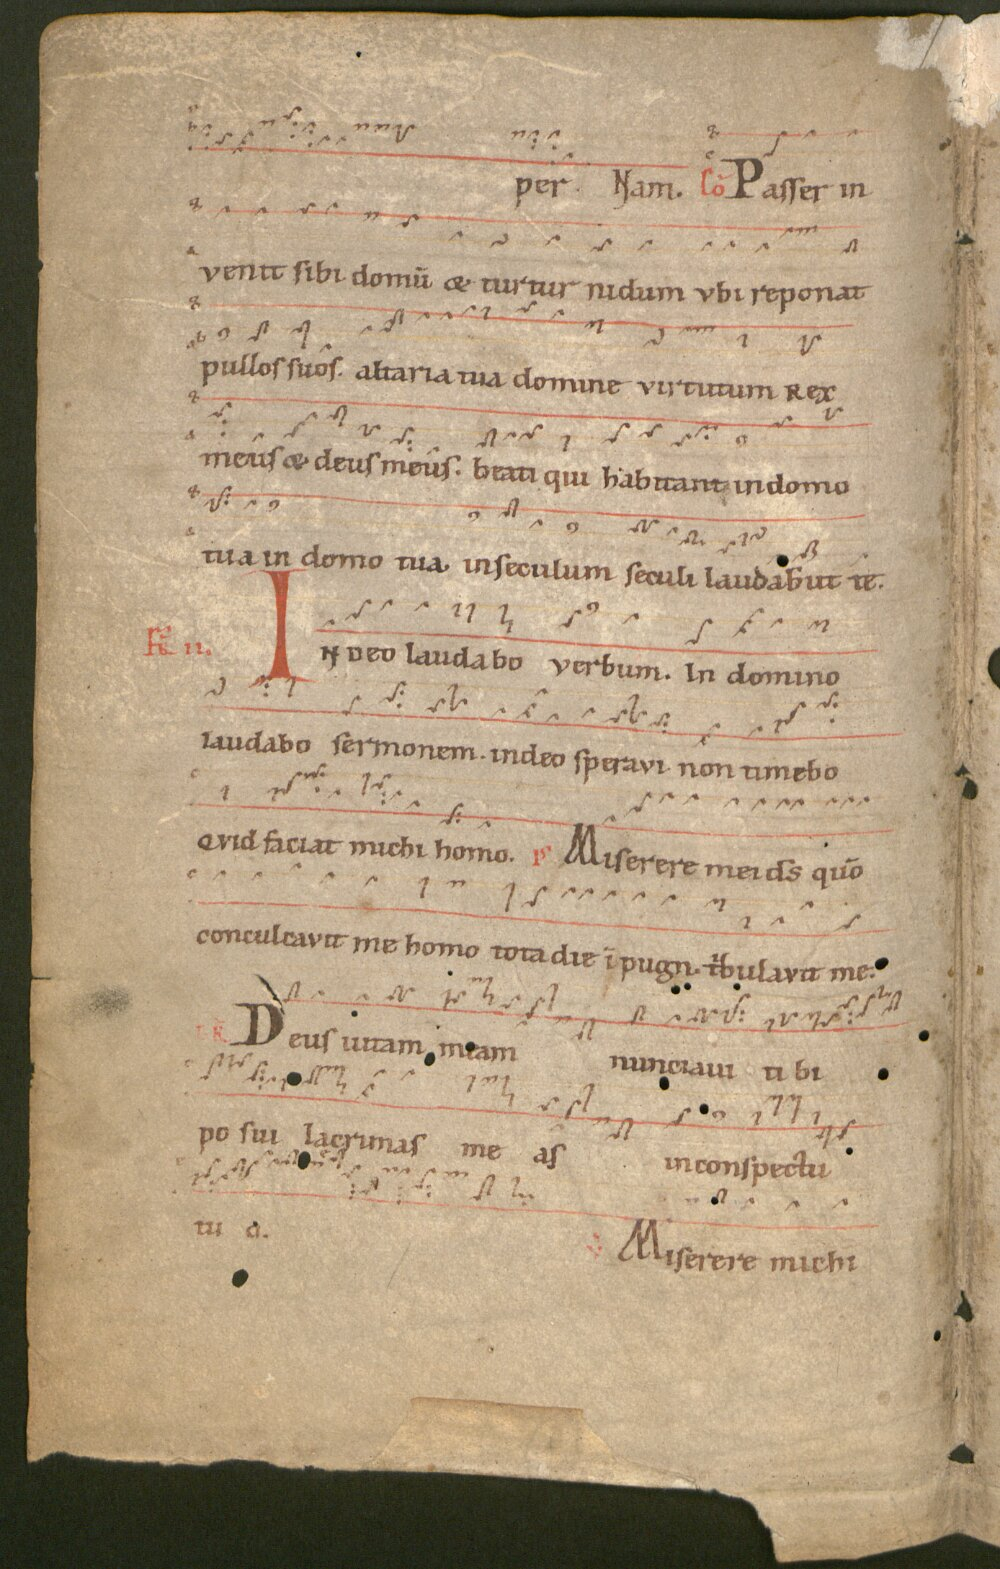 per. Nam. Cō Passer in
venit sibi domū & turtur nidum vbi reponat
pullos suos. altaria tua domine virtutum Rex
meus & deus meus. beati qui habitant in domo
tua in domo tua. in seculum seculi laudabut te.
F̄R̄ II. IN Deo laudabo verbum. In domino
laudabo sermonem. in deo speravi non timebo
Qvid faciat michi homo. ps Miserere mei ds̄ quō
conculcavit me homo tota die īpugn. t̄bulavit me.
GR̄ Deus uitam meam nunciaui ti bi
po sui lacrimas me as in conspectu
tu o. Miserere michi